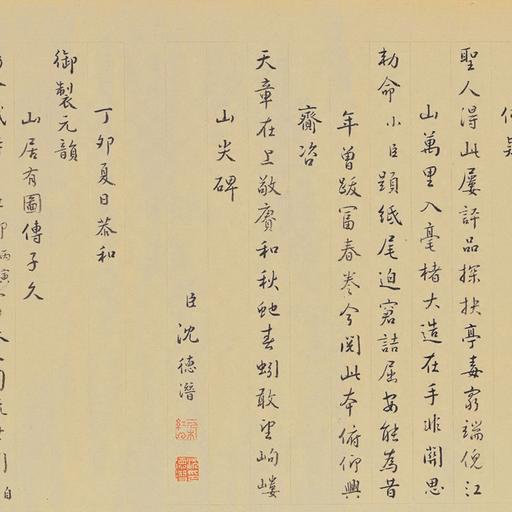 聖人得此屢評品探抉亭毒窮端倪江
山萬里入毫楮大造在手非關思
勅命小臣題紙尾迫窘詰屈安能為昔
年曾跋富春卷今閱此本俯仰興
齎咨
天章在上敬賡和秋蛇春蚓敢望岣嶁
山尖碑
臣沈德潛
丁夘夏日恭和
御製元韻
山居有圖傳子久